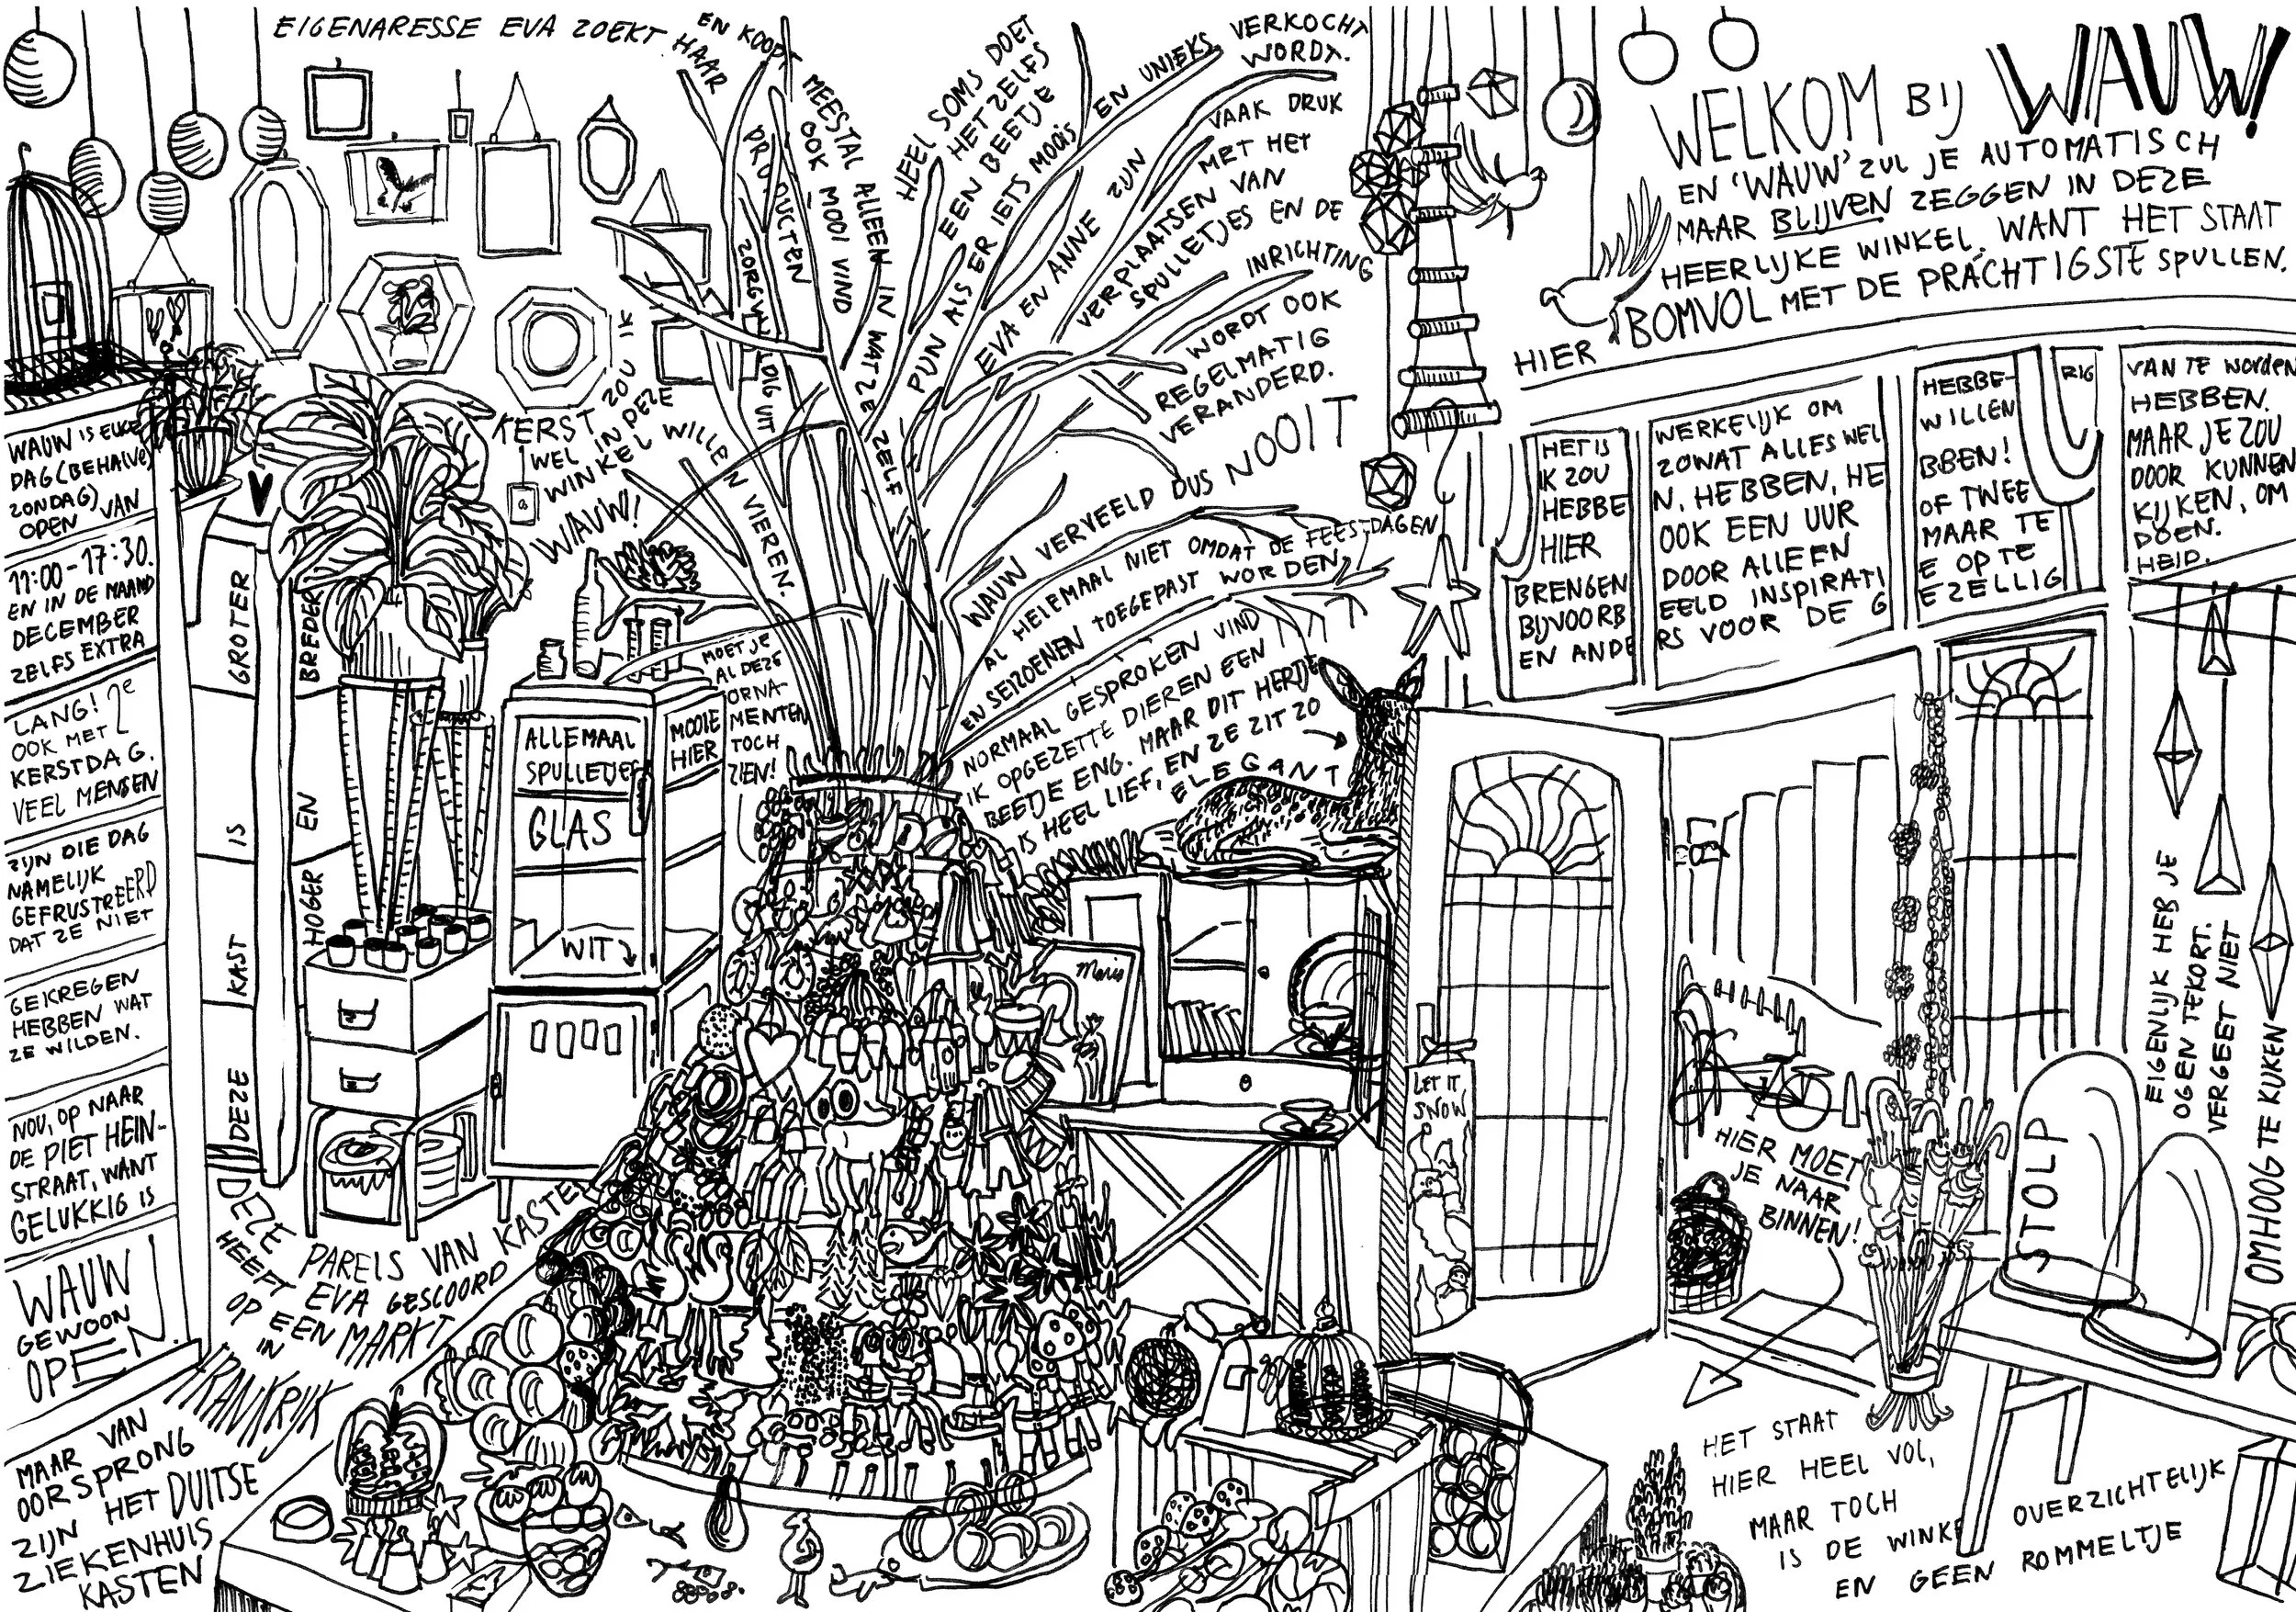 WELKOM BIJ WAUW!
EN 'WAUW' ZUL JE AUTOMATISCH
MAAR BLIJVEN ZEGGEN IN DEZE
HEERLIJKE WINKEL. WANT HET STAAT
HIER BOMVOL MET DE PRACHTIGSTE SPULLEN.
HET IS WERKELIJK OM VAN TE WORDEN
IK ZOU ZOWAT ALLES WEL WILLEN HEBBEN.
HEBBEN, HEBBEN, HEBBEN! MAAR JE ZOU
HIER OOK EEN UUR OF TWEE DOOR KUNNEN
BRENGEN DOOR ALLEEN MAAR TE KIJKEN, OM
BIJVOORBEELD INSPIRATIE OP TE DOEN.
EN ANDERS VOOR DE GEZELLIGHEID.
HEBBE-
RIG
EIGENARESSE EVA ZOEKT HAAR
PRODUCTEN
ZORGVULDIG UIT
EN KOOPT MEESTAL ALLEEN IN WAT ZE ZELF
OOK MOOI VIND
HEEL SOMS DOET
HET ZELFS
EEN BEETJE
PIJN ALS ER IETS MOOIS EN UNIEKS VERKOCHT
WORDT.
EVA EN ANNE ZIJN VAAK DRUK
MET HET
VERPLAATSEN VAN
SPULLETJES EN DE
INRICHTING
WORDT OOK
REGELMATIG
VERANDERD.
WAUW VERVEELD DUS NOOIT
AL HELEMAAL NIET OMDAT DE FEESTDAGEN
EN SEIZOENEN TOEGEPAST WORDEN
NORMAAL GESPROKEN VIND
IK OPGEZETTE DIEREN EEN
BEETJE ENG. MAAR DIT HERTJE
IS HEEL LIEF, EN ZE ZIT ZO
ELEGANT
KERST ZOU IK
WEL IN DEZE
WINKEL WILLEN VIEREN.
WAUW!
WAUW IS ELKE
DAG (BEHALVE
ZONDAG)
OPEN VAN
11:00 - 17:30.
EN IN DE MAAND
DECEMBER
ZELFS EXTRA
LANG! 2e
OOK MET
KERSTDAG.
VEEL MENSEN
ZIJN DIE DAG
NAMELIJK
GEFRUSTREERD
DAT ZE NIET
GEKREGEN
HEBBEN WAT
ZE WILDEN.
NOU, OP NAAR
DE PIET HEIN-
STRAAT, WANT
GELUKKIG IS
WAUW
GEWOON
OPEN!
DEZE KAST IS GROTER
HOGER EN BREDER
ALLEMAAL
SPULLETJES
GLAS
WIT
MOOIE
HIER
MOET JE
AL DEZE
ORNA-
MENTEN
TOCH
ZIEN!
DEZE PARELS VAN KASTEN
HEEFT EVA GESCOORD
OP EEN MARKT
IN
FRANKRIJK
MAAR VAN
OORSPRONG
ZIJN HET DUITSE
ZIEKENHUIS
KASTEN
LET IT
SNOW
HIER MOET
JE NAAR
BINNEN!
STOLP
EIGENLIJK HEB JE
OGEN TEKORT.
VERGEET NIET
OMHOOG TE KIJKEN
HET STAAT
HIER HEEL VOL,
MAAR TOCH
IS DE WINKEL OVERZICHTELIJK
EN GEEN ROMMELTJE